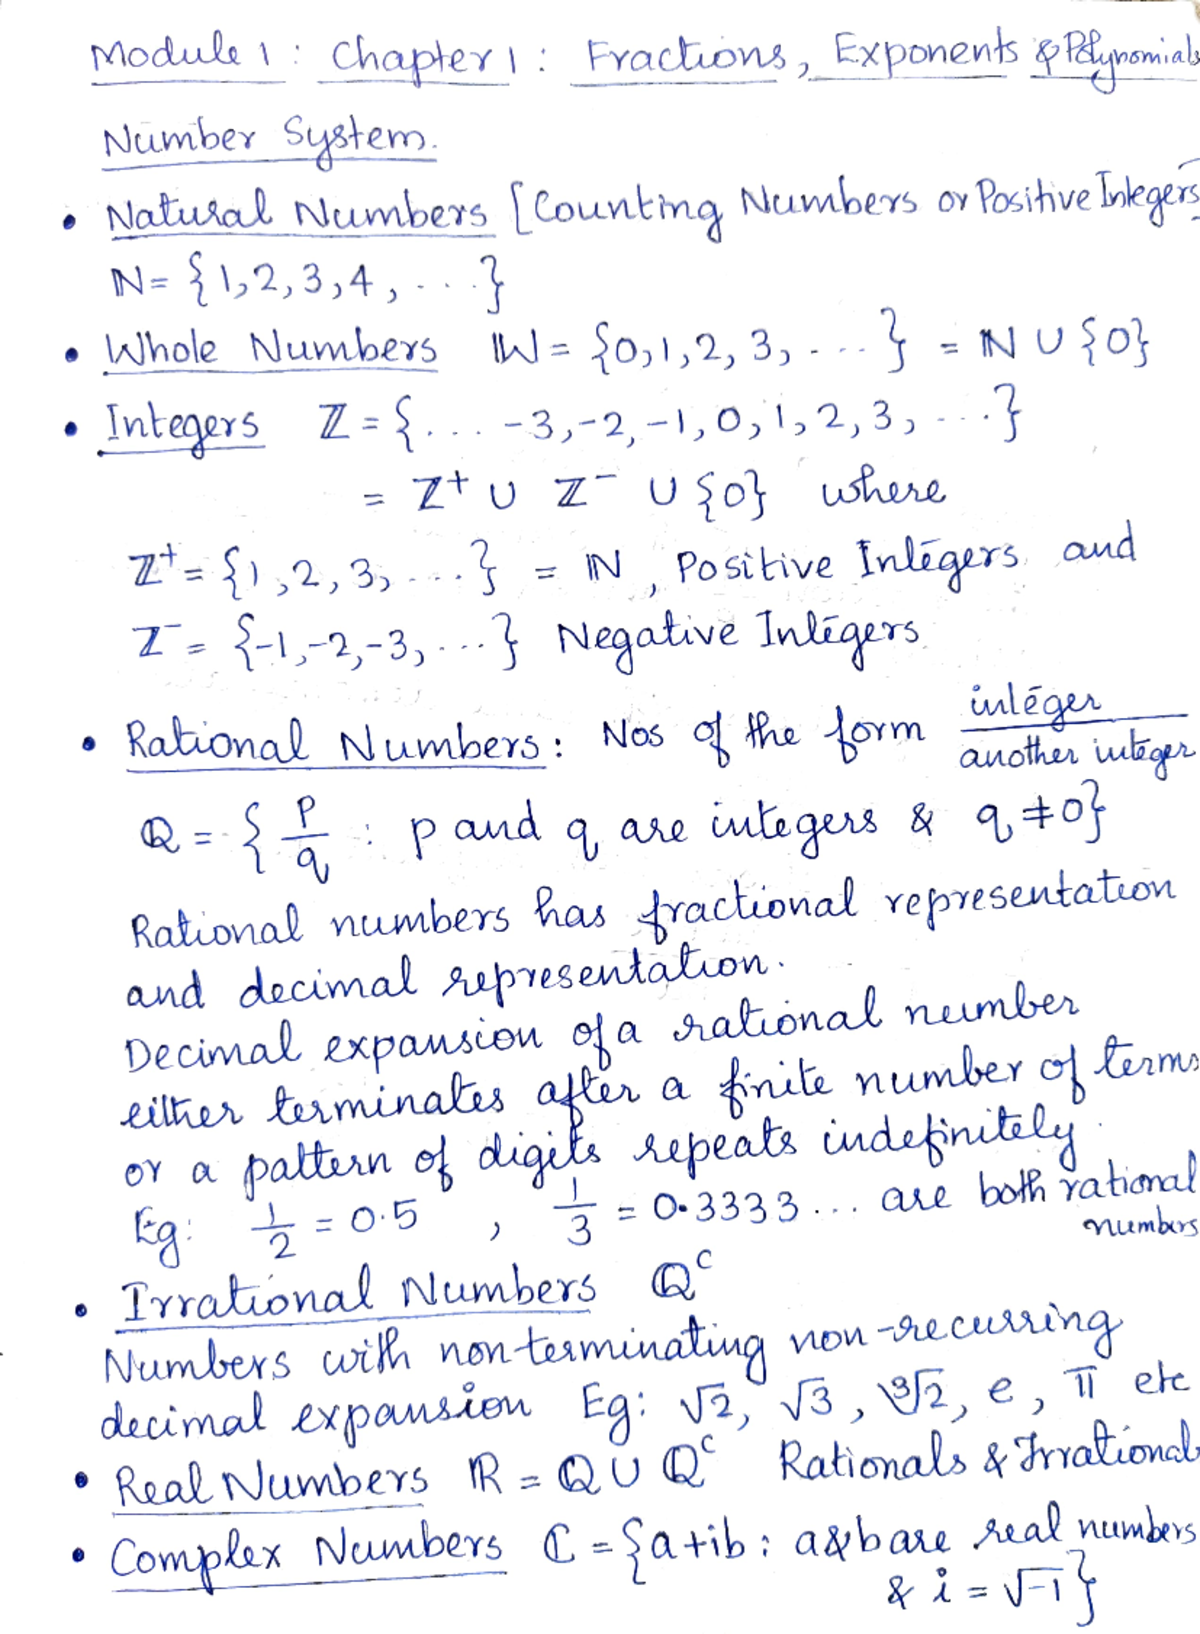 Module 1 : Chapter 1 : Fractions, Exponents & Polynomials
Number System.
• Natural Numbers [Counting Numbers or Positive Integers]
ℕ = {1, 2, 3, 4, ....}
• Whole Numbers 𝕎 = {0, 1, 2, 3, ....} = ℕ ∪ {0}
• Integers ℤ = {... -3, -2, -1, 0, 1, 2, 3, ....}
= ℤ⁺ ∪ ℤ⁻ ∪ {0} where
ℤ⁺ = {1, 2, 3, ....} = ℕ, Positive Integers and
ℤ⁻ = {-1, -2, -3, ....} Negative Integers.
• Rational Numbers : Nos of the form integer / another integer
ℚ = {p/q : p and q are integers & q ≠ 0}
Rational numbers has fractional representation
and decimal representation.
Decimal expansion of a rational number
either terminates after a finite number of terms
or a pattern of digits repeats indefinitely.
Eg: 1/2 = 0.5 , 1/3 = 0.3333... are both rational numbers
• Irrational Numbers ℚᶜ
Numbers with non-terminating non-recurring
decimal expansion Eg: √2, √3, ∛2, e, π etc
• Real Numbers ℝ = ℚ ∪ ℚᶜ Rationals & Irrationals
• Complex Numbers ℂ = {a+ib : a & b are real numbers
& i = √-1}